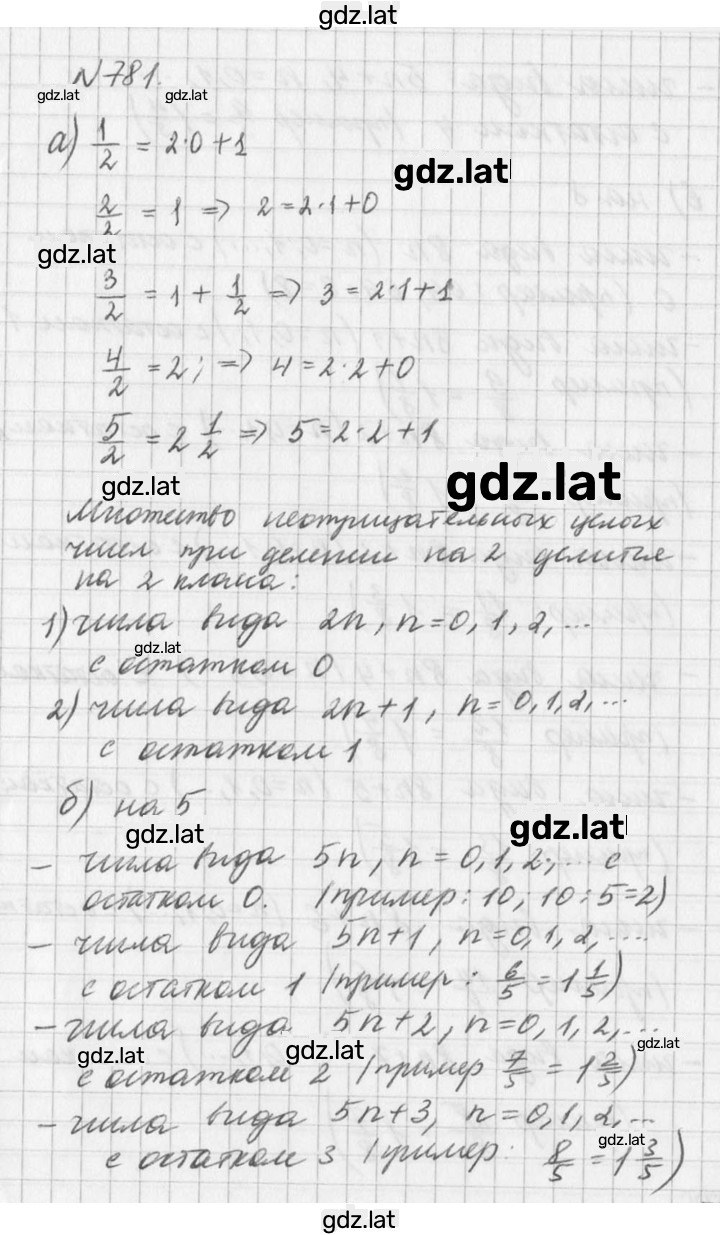 gdz.lat
№781.
gdz.lat gdz.lat
а) 1/2 = 2·0+1
gdz.lat
2/2 = 1 => 2=2·1+0
gdz.lat
3/2 = 1 + 1/2 => 3=2·1+1
4/2 = 2; => 4=2·2+0
5/2 = 2 1/2 => 5=2·2+1
gdz.lat gdz.lat
Множество неотрицательных целых
чисел при делении на 2 делится
на 2 класа:
1) числа вида 2n, n=0,1,2,...
gdz.lat
с остатком 0
2) числа вида 2n+1, n=0,1,2,...
с остатком 1
б) на 5
gdz.lat gdz.lat
- числа вида 5n, n=0,1,2,.. с
остатком 0. (пример: 10; 10:5=2)
- числа вида 5n+1, n=0,1,2,....
с остатком 1 (пример: 6/5 = 1 1/5)
- числа вида 5n+2, n=0,1,2,...
gdz.lat gdz.lat gdz.lat
с остатком 2 (пример 7/5 = 1 2/5)
- числа вида 5n+3, n=0,1,2,...
gdz.lat
с остатком 3 (пример: 8/5 = 1 3/5)
gdz.lat